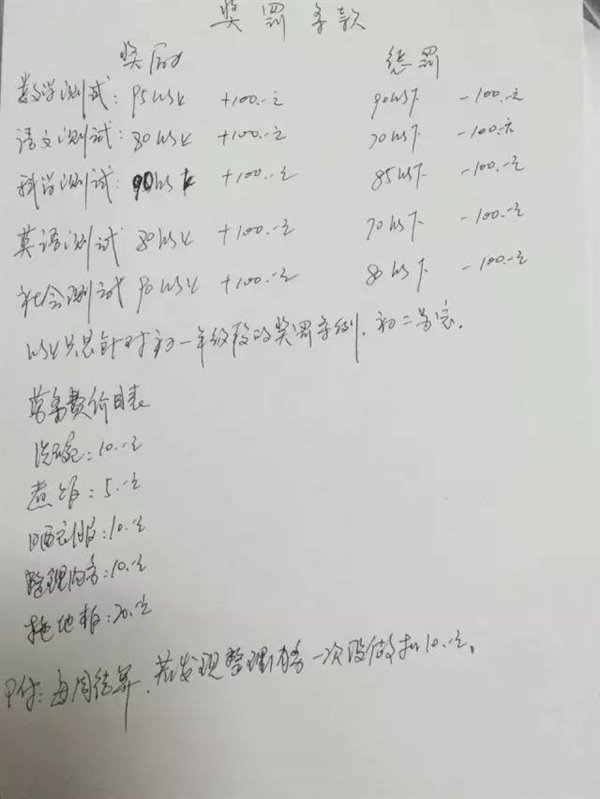 奖罚条款
奖励 惩罚
数学测试: 95以上 +100.-元 90以下 -100.-元
语文测试: 80以上 +100.-元 70以下 -100.-元
科学测试: 90以上 +100.-元 85以下 -100.-元
英语测试 80以上 +100.-元 70以下 -100.-元
社会测试 90以上 +100.-元 80以下 -100.-元
以上只是针对初一年级段的奖罚条例.初二另定.
劳务费价目表
洗碗:10.-元
煮饭:5.-元
晒衣服:10.-元
整理内务:10.-元
拖地板:20.-元
附:每周结算,若发现整理内务一次没做扣10.-元.